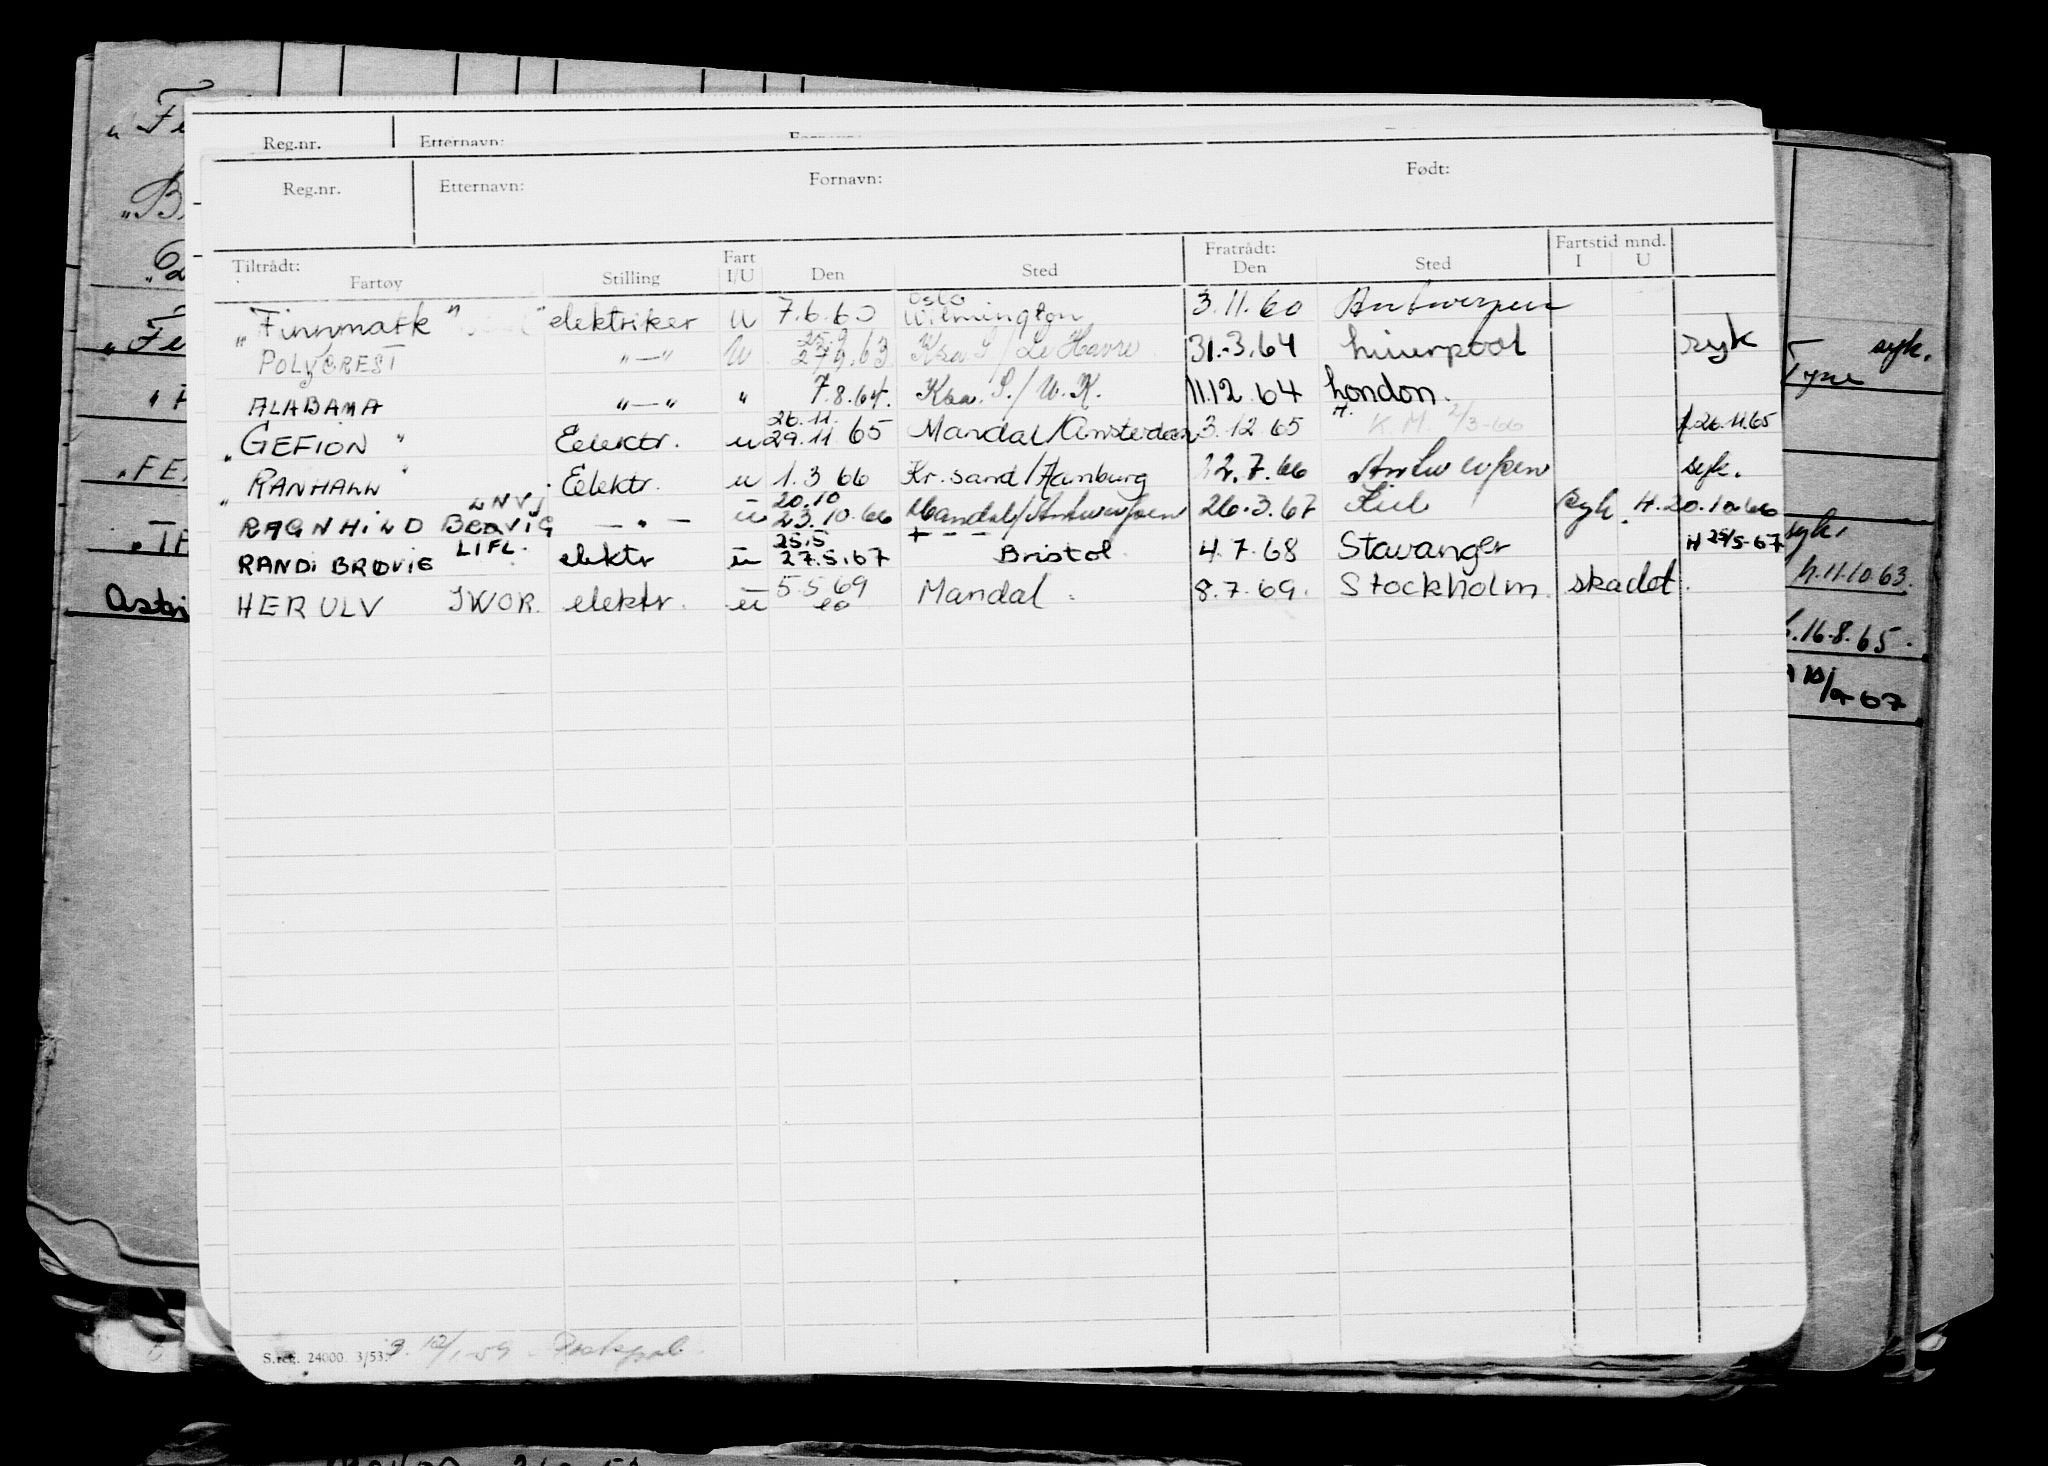 Reg.nr. Etternavn: Fornavn:
Reg.nr. Etternavn: Fornavn: Født:
Tiltrådt: Fart Fratrådt: Fartstid mnd.
Fartøy Stilling I/U Den Sted Den Sted I U
"Finnmark" elektriker U 7.6.60 Oslo Wilmington 3.11.60 Antwerpen
25.9
POLYCREST "—" U 27.9.63 Krs. S/Le Havre 31.-3.64 Liverpool syk
ALABAMA "—" " 7.8.64. Krs. S./U.K. 11.12.64 London.
26.11.
"GEFION" Elektr. u 29.11.65 Mandal/Amsterdam 3.12.65 K.M. 2/3-66 26.11.65
"RANHALL" Elektr. u 1.3 66 Kr.sand/Hamburg 12.7.66 Antwerpen syk.
LNVJ 20.10
RAGNHILD BRØVIG —"— u 23.10.66 Mandal/Antwerpen 26.3.67 Kiel syk. H.20.10.66
LIFL. 25.5
RANDI BRØVIG elektr u 27.5.67 Bristol 4.7.68 Stavanger H 25/5-67
HERULV JWOR. elektr. u 5.5.69 Mandal. 8.7.69. Stockholm. skadet.
syk.
Tyne
syk.
h.11.10.63.
h.16.8.65.
S.reg. 24000. 3/53.
"FE
Astri